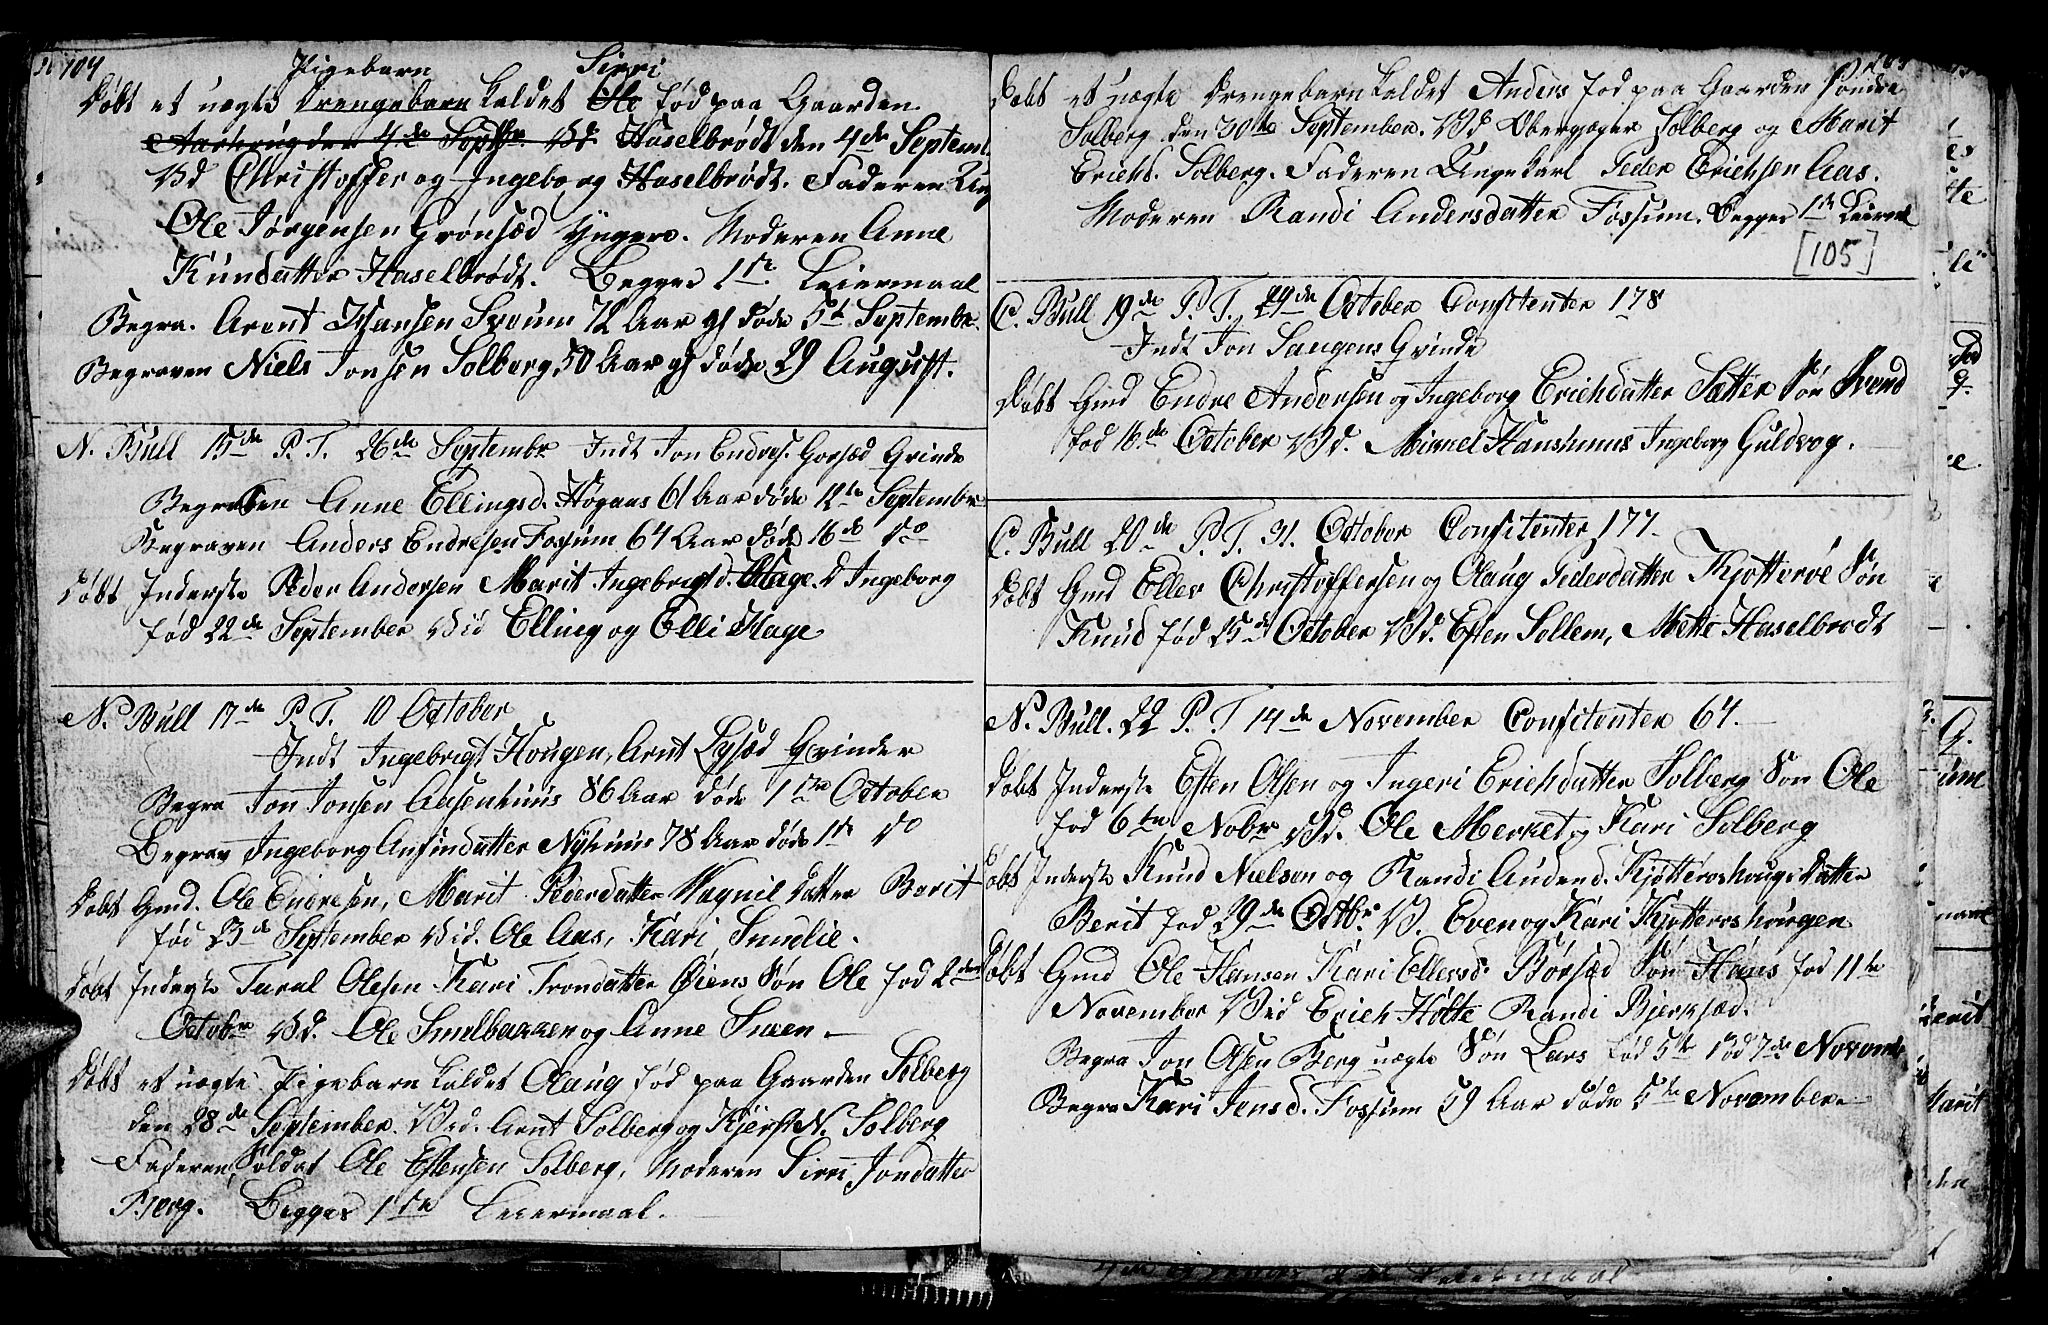 104
Pigebarn Sirri
Døbt et uægte Drengebarn kaldet Ole fød paa Gaarden
Aashoug den 4de Septbr. Vd Haselbrødt den 4de Septemb
Vd Christoffer og Ingeborg Haselbrødt. Faderen Ung
Ole Jørgensen Grønsæd Yngere. Moderen Anne
Knudatter Haselbrødt. Begges 1ste Leiermaal
Begra. Arent Hansen Svenn 72 Aar gl døde 5te Septembr.
Begraven Niels Jonsen Solberg 50 Aar gl døde 29 August.
N. Bull 15de P. T. 26de Septembr Indt Jon Endres. Gorsæd Qvinde
Begraven Anne Ellingsd. Høgaas 61 Aar døde 12te Septembr
Begraven Anders Endresen Fossum 64 Aar døde 16de do
Døbt Inderste Peder Andersen Marit Ingebrigtd. Hage. D Ingeborg
fød 22de September Vid Elling og Elli Hage
N. Bull 17de P. T. 10 October
Indt Ingebrigt Hougen, Arnt Lysæd Qvinder
Begra Jon Jonsen Aasenhuus 86 Aar døde 1ste October
Begrav Ingeborg Anfindatter Nyhuus 78 Aar døde 1te do
Døbt Gmd. Ole Endresen, Marit Pedersdatter Vagnil Datter Berit
fød 23de September Vid. Ole Aas, Kari Smelie.
Døbt Inderste Taral Olesen Kari Trondatter Øiens Søn Ole fød 2den
Octobr Vd. Ole Smelbakken og Anne Sneen.
Døbt et uægte Pigebarn kaldet Olaug fød paa Gaarden Solberg
den 28de September. Vid. Arnt Solberg og Kjerst N. Solberg
Faderen Soldat Ole Estensen Solberg, Moderen Sirri Jondatter
Berg. Begges 1ste Leiermaal.
Døbt et uægte Drengebarn kaldet Anders fød paa Gaarden Søndre
Solberg den 30te September. Vd Oberjæger Solberg og Marit
Erichs. Solberg. Faderen Ungekarl Peder Erichsen Aas.
Moderen Randi Andersdatter Fossum. Begges 1te Leierml
[105]
C. Bull 19de P. T. 29de October Confitenter 178
Indt Jon Haugens Qvinde
Døbt Gmd Endre Andersen og Ingeborg Erichdatter Sætter Søn Svend
fød 16de October Vd. Mikkel Hanshuus Ingeborg Guldvog.
C. Bull 20de P. T. 31. October Confitenter 177.
Døbt Gmd Ellev Christoffersen og Olaug Pedersdatter Kjøtterøe Søn
Knud fød 25de October Vd. Esten Sollem, Mette Haselbrødt
N. Bull. 22 P. T. 14de November Confitenter 64.
Døbt Inderste Esten Olsen og Ingeri Erichdatter Solberg Søn Ole
fød 6te Nobr Vd. Ole Merket og Kari Solberg
Døbt Inderste Knud Nielsen og Randi Audend. Kjøtteroshougs Datter
Berit fød 29de Octbr. Vd. Even og Kari Kjøtteroshougen
Døbt Gmd Ole Hansen Kari Ellevsd. Børsæd Søn Hans fød 11te
November Vid Erich Holte Randi Bjerksæd.
Begra Jon Olsen Berg uægte Søn Lars fød 5te død 7de Novemb
Begra Kari Jensd. Fossum 59 Aar døde 5te November.